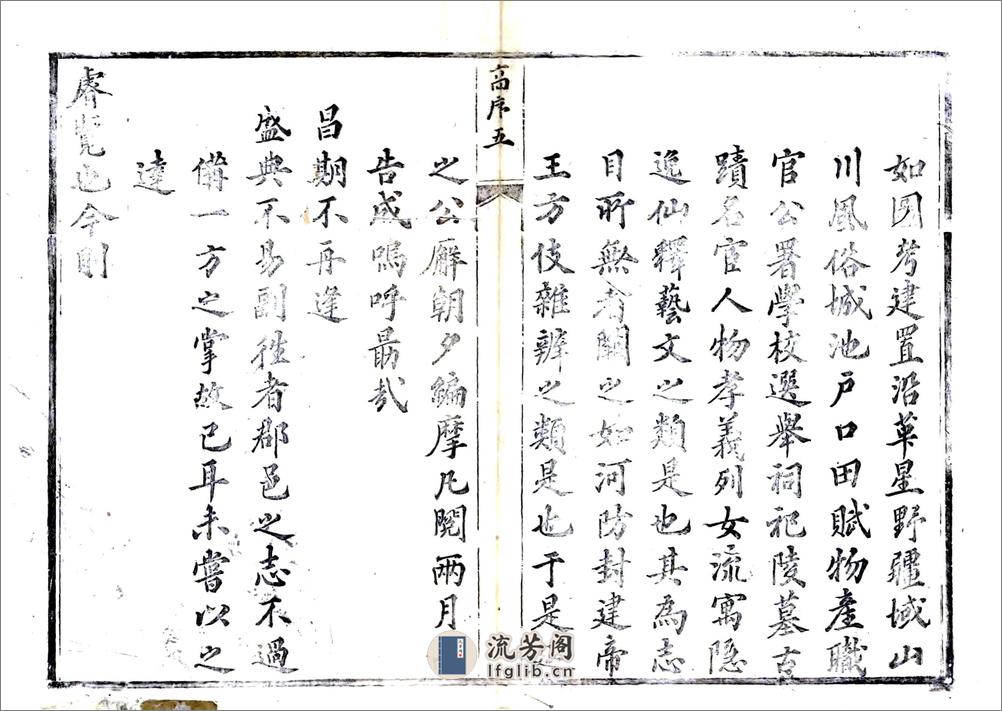 如圖考建置沿革星野疆域山
川風俗城池戶口田賦物產職
官公署學校選舉祠祀陵墓古
蹟名宦人物孝義列女流寓隱
逸仙釋藝文之類是也其為志
目所無者闕之如河防封建帝
王方伎雜辨之類是也于是
高序五
之公廨朝夕編摩凡閱兩月
告成嗚呼勗哉
昌期不再逢
盛典不易副往者郡邑之志不過
備一方之掌故已耳未嘗以之
達
睿覽也今則
流芳阁
lfglib.cn